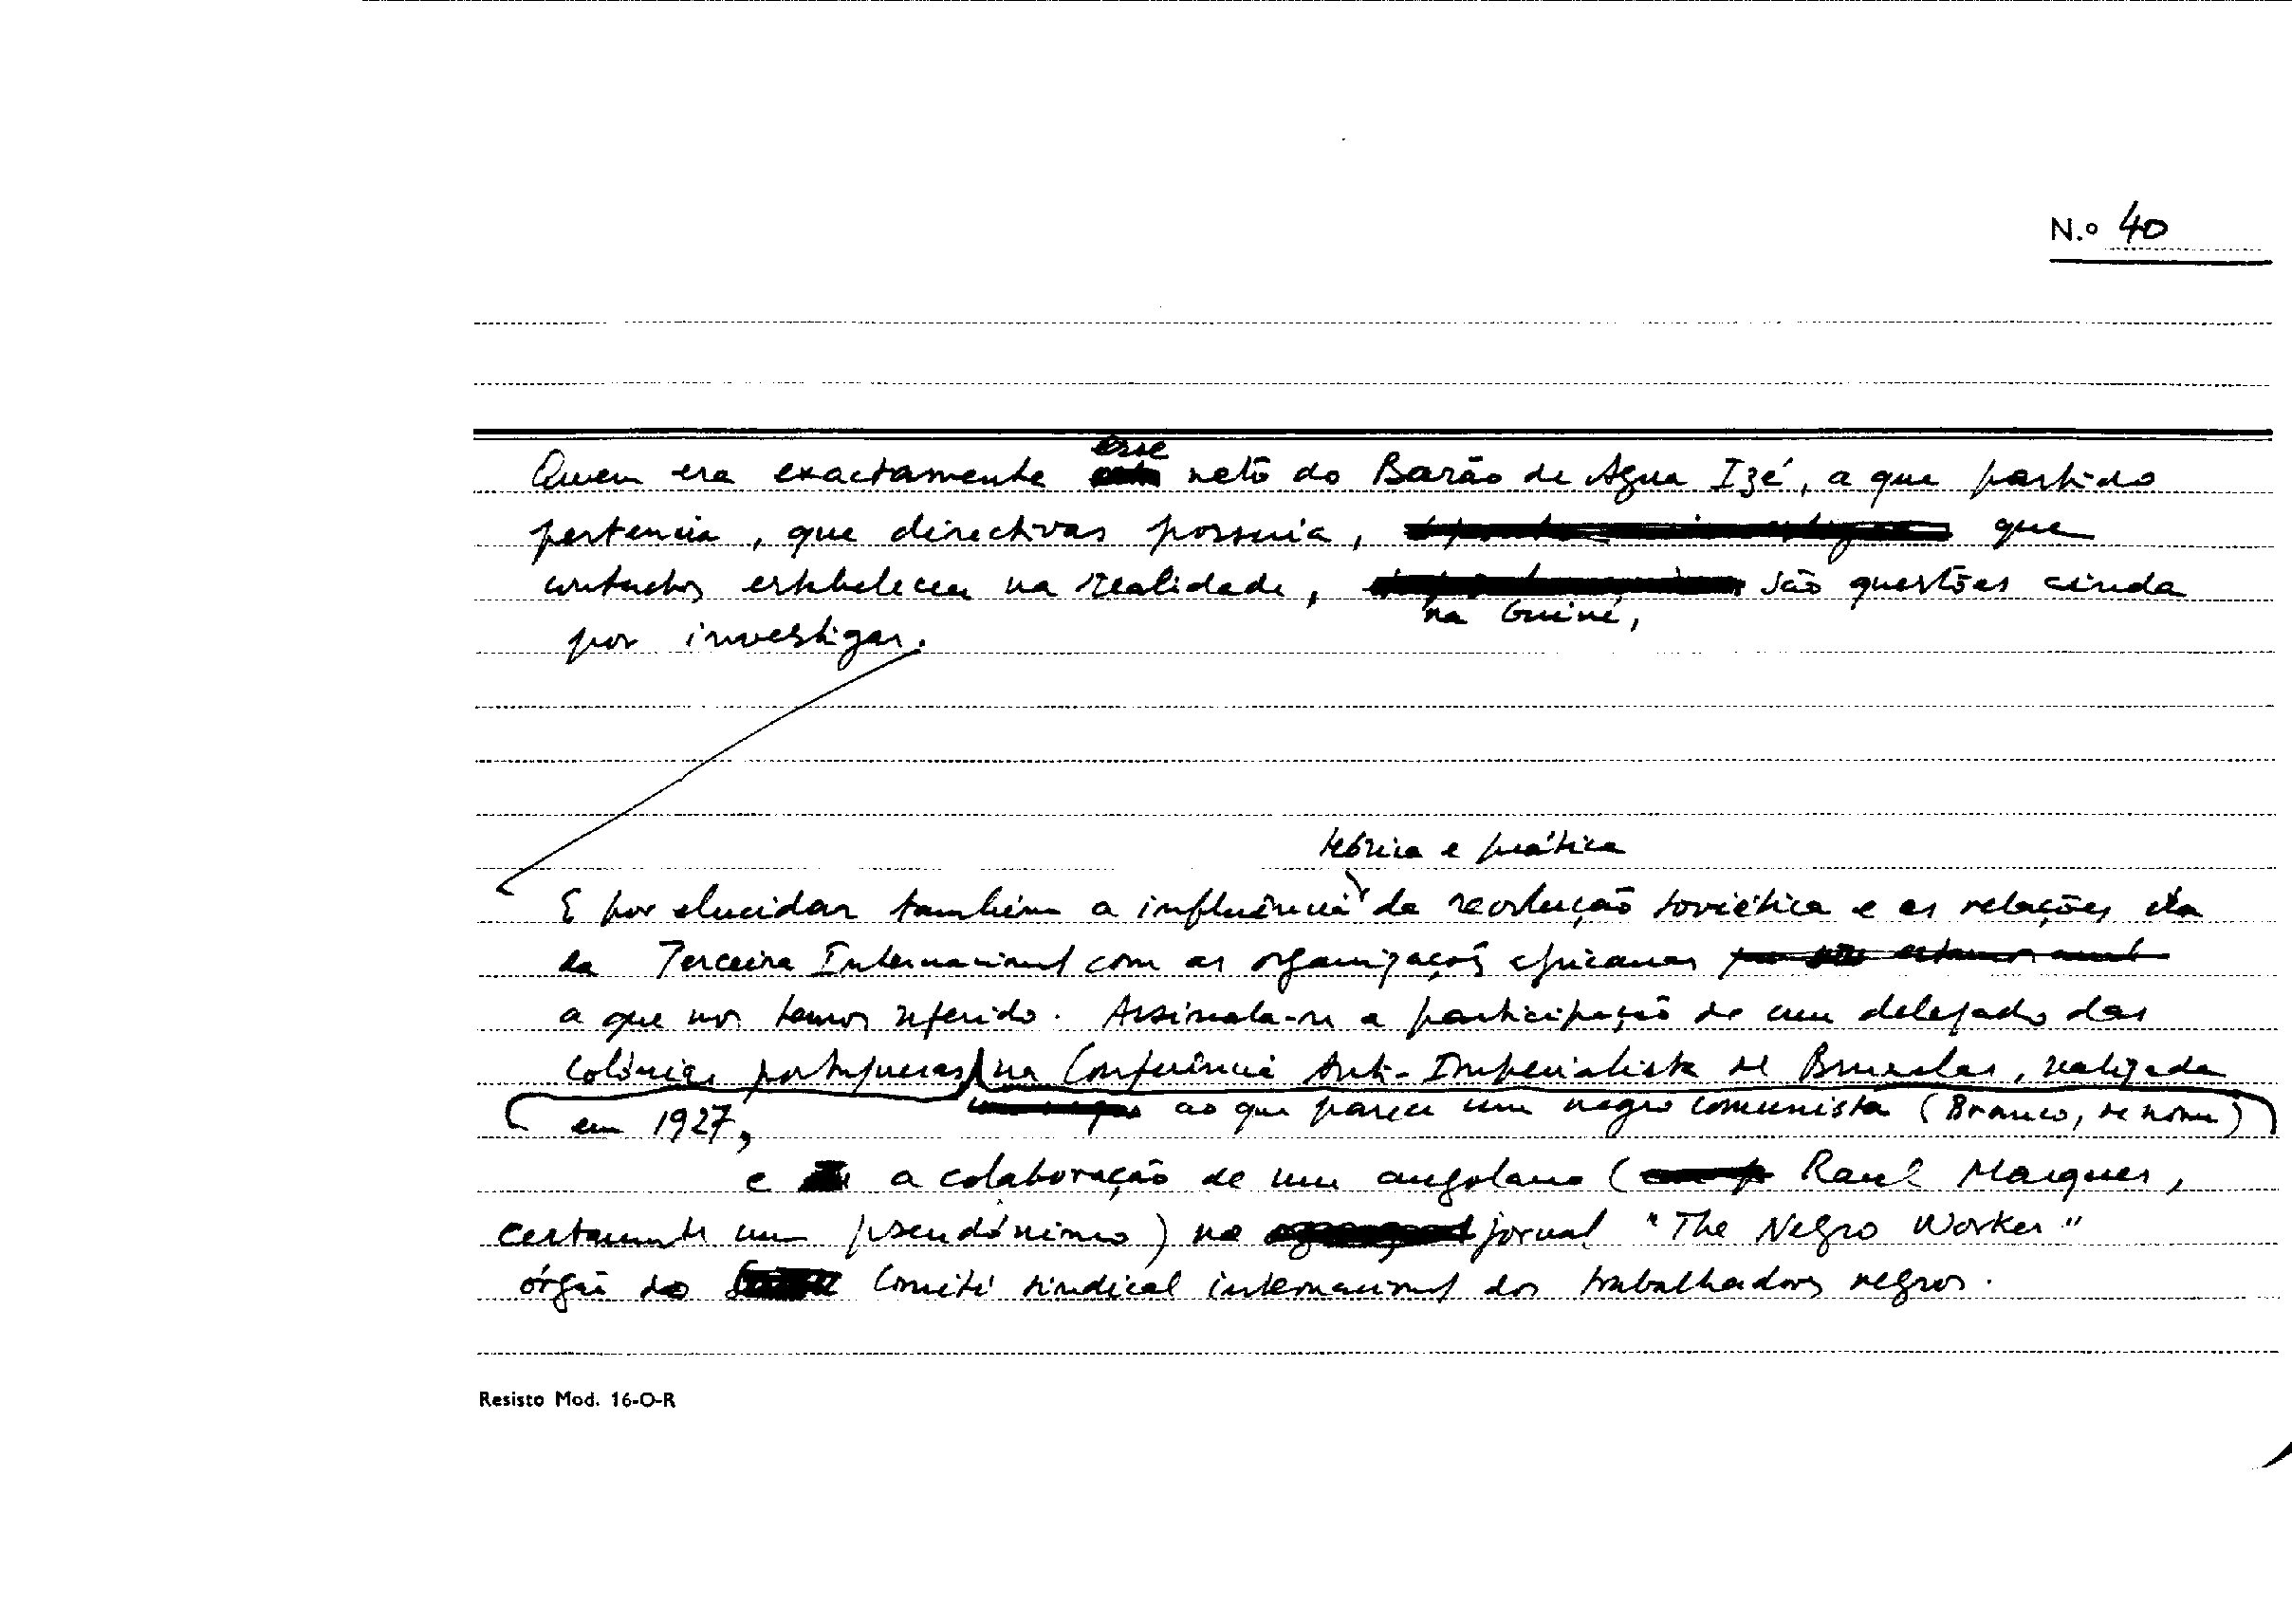 N.º 40
esse
Quem era exactamente neto do Barão de Agua Izé, a que partido
pertencia, que directivas possuia, que
contactos estabeleceu na realidade, são questões ainda
na Guiné,
por investigar.
teórica e prática
E por elucidar também a influência da revolução soviética e as relações
da Terceira Internacional com as organizações africanas
a que nos temos referido. Assinala-se a participação de um delegado das
Colónias portuguesas na Conferência Anti-Imperialista de Bruxelas, realizada
ao que parece um negro comunista (Branco, de nome)
em 1927,
e a colaboração de um angolano ( Raul Marques,
certamente um pseudónimo) no jornal "The Negro Worker"
órgão do Comité sindical internacional dos trabalhadores negros.
Resisto Mod. 16-O-R